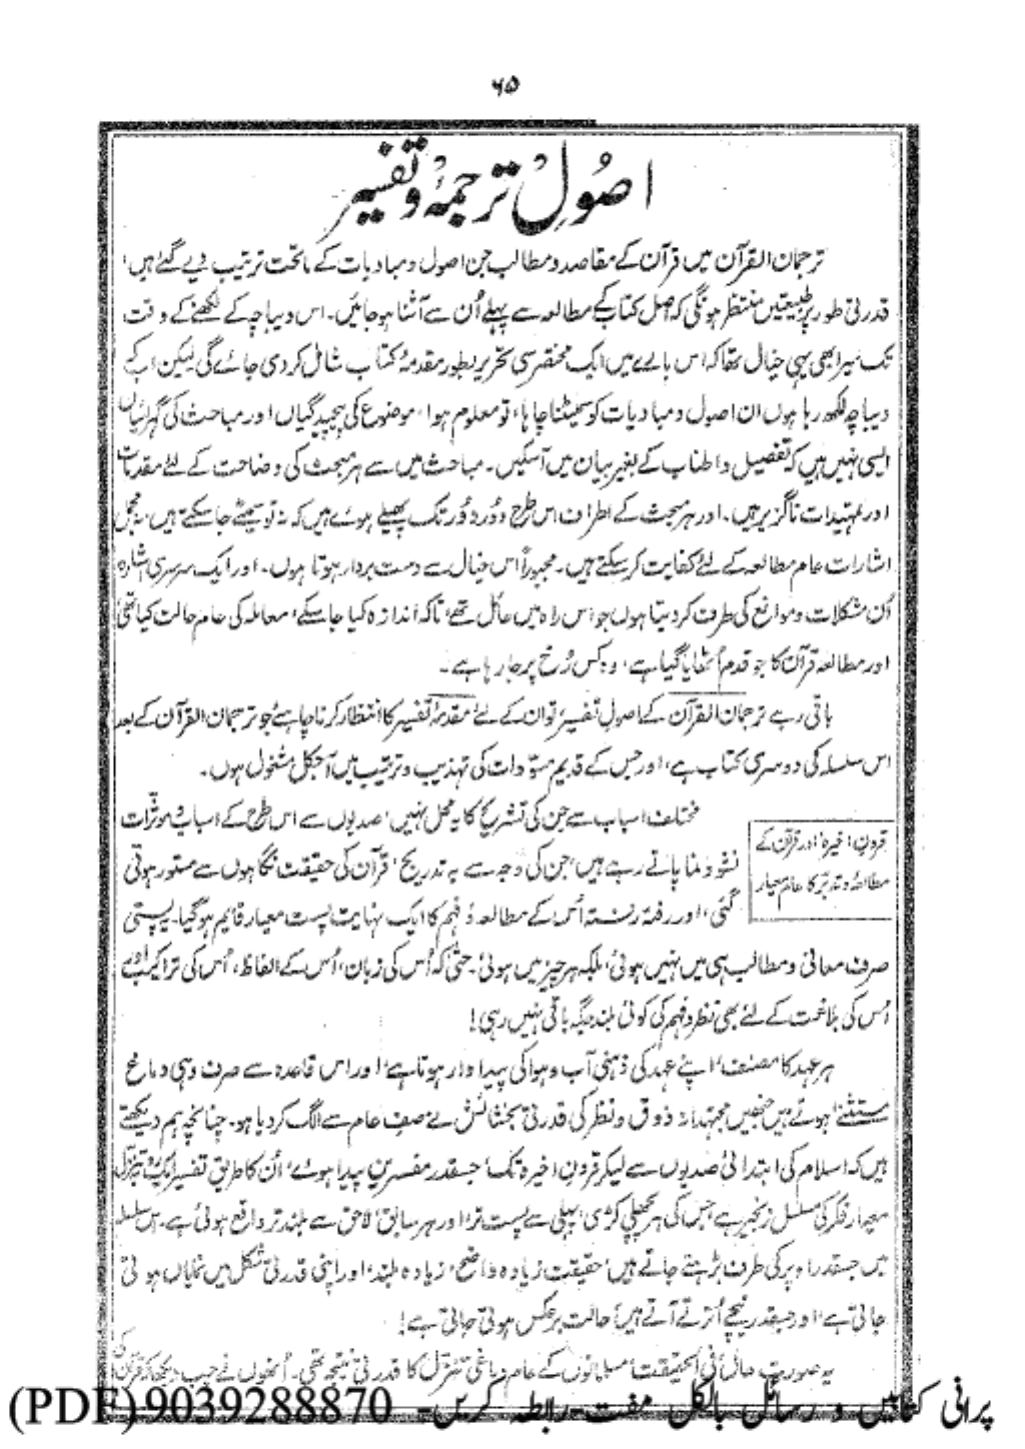 ۶۵
اصولِ ترجمہ و تفسیر
ترجمان القرآن میں قرآن کے مقاصد و مطالب جن اصول و مبادیات کے ماتحت ترتیب دیے گئے ہیں،
قدرتی طور پر طبیعتیں منتظر ہونگی کہ اصل کتاب کے مطالعہ سے پہلے اُن سے آشنا ہو جائیں۔ اس دیباچہ کے لکھنے کے وقت
تک میرا بھی یہی خیال تھا کہ اس بارے میں ایک مختصر سی تحریر بطور مقدمۂ کتاب شامل کر دی جائے گی لیکن اب کہ
دیباچہ لکھ رہا ہوں ان اصول و مبادیات کو سمیٹنا چاہا، تو معلوم ہوا، موضوع کی پیچیدگیاں اور مباحث کی گہرائیاں
ایسی نہیں ہیں کہ تفصیل و اطناب کے بغیر بیان میں آسکیں۔ مباحث میں سے ہر مبحث کی وضاحت کے لئے مقدمات
اور تمہیدات ناگزیر ہیں۔ اور ہر مبحث کے اطراف اس طرح دُور دُور تک پھیلے ہوئے ہیں کہ نہ تو سمیٹے جا سکتے ہیں، نہ مجمل
اشارات عام مطالعہ کے لئے کفایت کر سکتے ہیں۔ مجبوراً اس خیال سے دست بردار ہوتا ہوں۔ اور ایک سرسری اشارہ
اُن مشکلات و موانع کی طرف کر دیتا ہوں جو اس راہ میں حائل تھے، تاکہ اندازہ کیا جا سکے، معاملہ کی عام حالت کیا تھی،
اور مطالعہ قرآن کا جو قدم اُٹھایا گیا ہے، وہ کس رُخ پر جا رہا ہے۔
باقی رہے ترجمان القرآن کے اصولِ تفسیر، تو ان کے لئے مقدمۂ تفسیر کا انتظار کرنا چاہئے جو ترجمان القرآن کے بعد
اس سلسلہ کی دوسری کتاب ہے، اور جس کے قدیم مسوّدات کی تہذیب و ترتیب میں آجکل مشغول ہوں۔
قرونِ اخیرہ اور قرآن کے
مطالعہ و تدبر کا عام معیار
مختلف اسباب سے جن کی تشریح کا یہ محل نہیں، صدیوں سے اس طرح کے اسباب و مؤثرات
نشو و نما پاتے رہے ہیں، جن کی وجہ سے بہ تدریج، قرآن کی حقیقت نگاہوں سے مستور ہوتی
گئی، اور رفتہ رفتہ اُس کے مطالعہ و فہم کا ایک نہایت پست معیار قایم ہو گیا۔ یہ پستی
صرف معانی و مطالب ہی میں نہیں ہوئی، بلکہ ہر چیز میں ہوئی۔ حتیٰ کہ اُس کی زبان، اُس کے الفاظ، اُس کی تراکیب، اور
اُس کی بلاغت کے لئے بھی نظر و فہم کی کوئی بلند جگہ باقی نہیں رہی!
ہر عہد کا مصنف، اپنے عہد کی ذہنی آب و ہوا کی پیداوار ہوتا ہے، اور اس قاعدہ سے صرف وہی دماغ
مستثنےٰ ہوتے ہیں جنھیں مجتہدانہ ذوق و نظر کی قدرتی بخشائش نے صفِ عام سے الگ کر دیا ہو۔ چنانچہ ہم دیکھتے
ہیں کہ اسلام کی ابتدائی صدیوں سے لیکر قرونِ اخیرہ تک، جسقدر مفسرین پیدا ہوئے، اُن کا طریق تفسیر ایک رو بتنزل
معیارِ فکر کی مسلسل زنجیر ہے جس کی ہر پچھلی کڑی، پہلی سے پست تر، اور ہر سابق، لاحق سے بلند تر واقع ہوئی ہے۔ اس سلسلہ
میں جسقدر اوپر کی طرف بڑہتے جاتے ہیں، حقیقت زیادہ واضح، زیادہ بلند، اور اپنی قدرتی شکل میں نمایاں ہوتی
جاتی ہے، اور جسقدر نیچے اُترتے آتے ہیں، حالت برعکس ہوتی جاتی ہے!
یہ صورتِ حال فی الحقیقت مسلمانوں کے عام دماغی تنزل کا قدرتی نتیجہ تھی۔ اُنھوں نے جب دیکھا کہ قرآن کی
پرانی کتابیں و رسائل بالکل مفت۔ رابطہ کریں۔ 9039288870 (PDF)